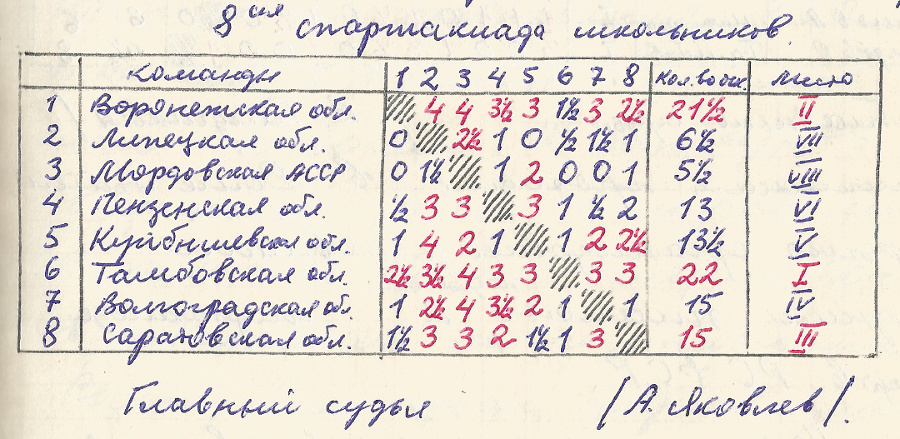 8ая спартакиада школьников
Команды 1 2 3 4 5 6 7 8 Кол.во очк. Место
1 Воронежская обл. 4 4 3½ 3 1½ 3 2½ 21½ II
2 Липецкая обл. 0 2½ 1 0 ½ 1½ 1 6½ VII
3 Мордовская АССР 0 1½ 1 2 0 0 1 5½ VIII
4 Пензенская обл. ½ 3 3 3 1 ½ 2 13 VI
5 Куйбышевская обл. 1 4 2 1 1 2 2½ 13½ V
6 Тамбовская обл. 2½ 3½ 4 3 3 3 3 22 I
7 Волгоградская обл 1 2½ 4 3½ 2 1 1 15 IV
8 Саратовская обл. 1½ 3 3 2 1½ 1 3 15 III
Главный судья /А. Яковлев/.